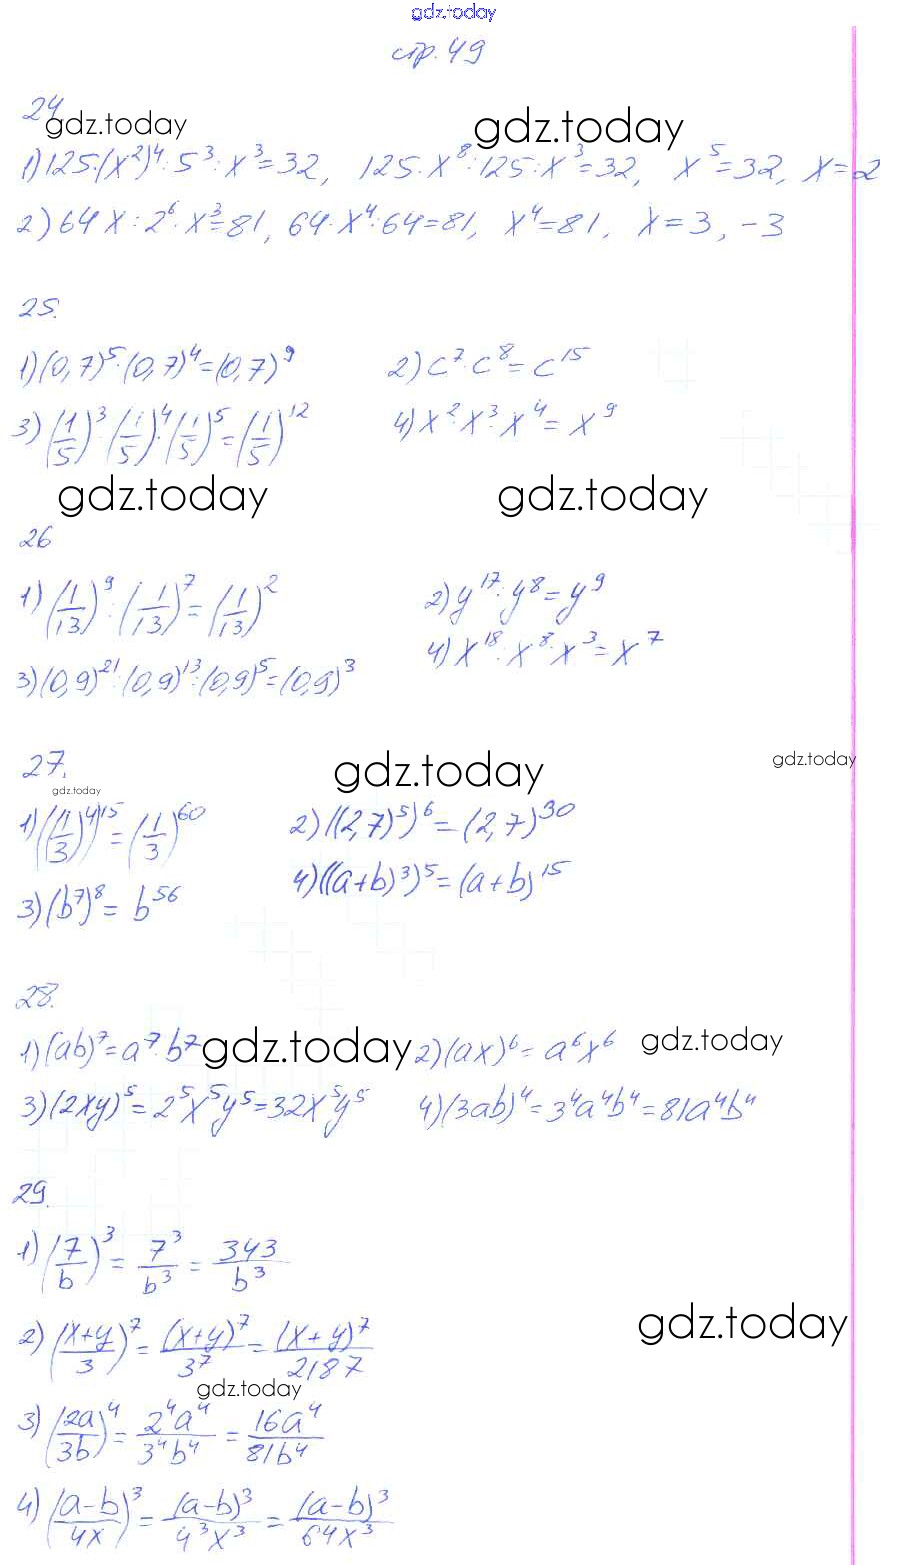 gdz.today
стр. 49
24
gdz.today gdz.today
1) 125·(x²)⁴ : 5³ : x³ = 32, 125·x⁸ : 125 : x³ = 32, x⁵ = 32, x = 2
2) 64x : 2⁶ · x³ = 81, 64·x⁴ : 64 = 81, x⁴ = 81, x = 3, -3
25.
1) (0,7)⁵·(0,7)⁴ = (0,7)⁹ 2) c⁷·c⁸ = c¹⁵
3) (1/5)³·(1/5)⁴·(1/5)⁵ = (1/5)¹² 4) x²·x³·x⁴ = x⁹
gdz.today gdz.today
26
1) (1/13)⁹ : (1/13)⁷ = (1/13)² 2) y¹⁷ : y⁸ = y⁹
3) (0,9)²¹ : (0,9)¹³ : (0,9)⁵ = (0,9)³ 4) x¹⁸ : x⁸ : x³ = x⁷
27.
gdz.today gdz.today gdz.today
1) ((1/3)⁴)¹⁵ = (1/3)⁶⁰ 2) ((2,7)⁵)⁶ = (2,7)³⁰
3) (b⁷)⁸ = b⁵⁶ 4) ((a+b)³)⁵ = (a+b)¹⁵
28.
1) (ab)⁷ = a⁷·b⁷ gdz.today 2) (ax)⁶ = a⁶x⁶ gdz.today
3) (2xy)⁵ = 2⁵x⁵y⁵ = 32x⁵y⁵ 4) (3ab)⁴ = 3⁴a⁴b⁴ = 81a⁴b⁴
29.
1) (7/b)³ = 7³/b³ = 343/b³
2) ((x+y)/3)⁷ = (x+y)⁷/3⁷ = (x+y)⁷/2187 gdz.today
gdz.today
3) (2a/3b)⁴ = 2⁴a⁴/3⁴b⁴ = 16a⁴/81b⁴
4) ((a-b)/4x)³ = (a-b)³/4³x³ = (a-b)³/64x³